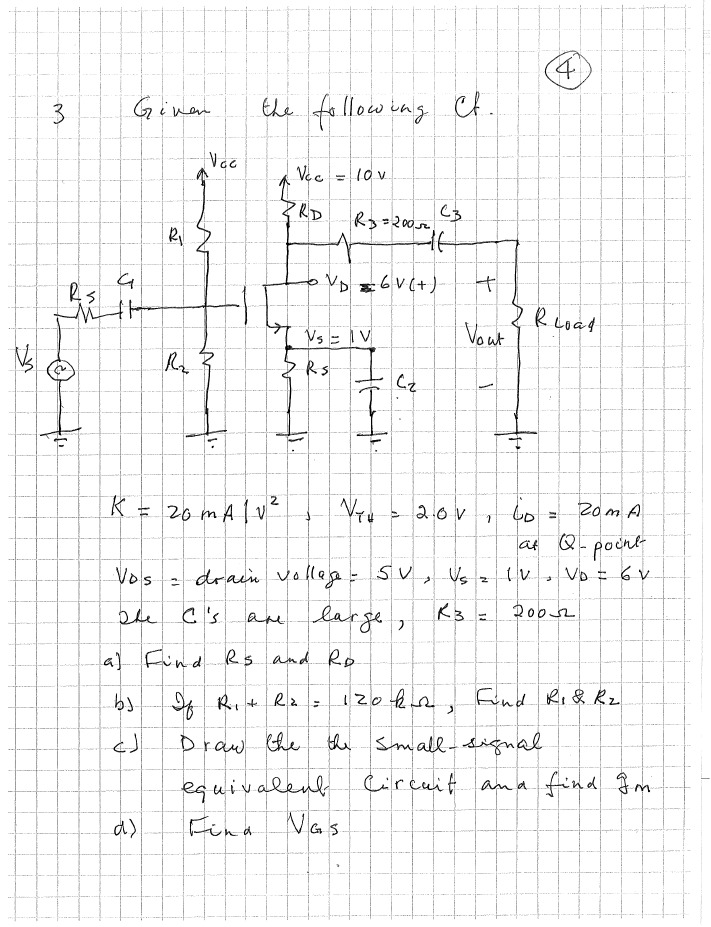 4
3 Given the following Ct.
Vcc
Vcc = 10 V
RD
R3 = 200 Ω
C3
R1
RS
C1
VD = 6 V (+)
+
R Load
Vout
VS = 1 V
VS
R2
RS
C2
−
K = 20 mA / V² , VTH = 2.0 V , iD = 20 mA
at Q-point
VDS = drain voltage = 5 V , VS = 1 V , VD = 6 V
The C's are large , R3 = 200 Ω
a] Find RS and RD
b) If R1 + R2 = 120 kΩ , Find R1 & R2
c) Draw the the small-signal
equivalent Circuit and find gm
d) Find VGS